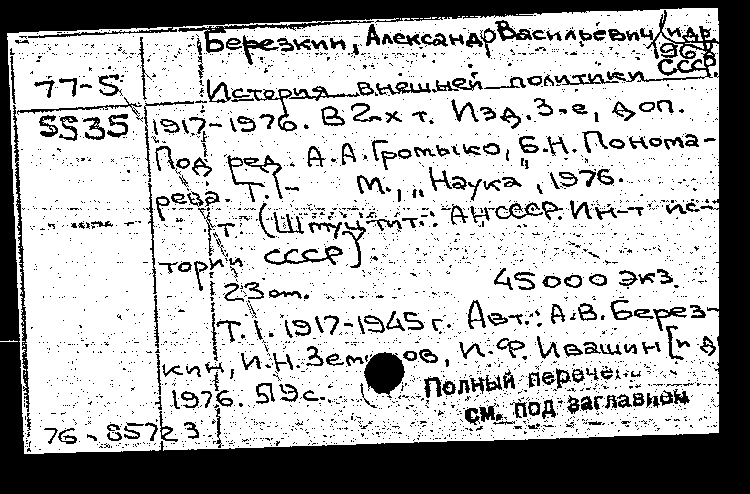 Березкин, Александр Васильевич (и др.
1967
77-5 История внешней политики СССР.
5535 1917-1976. В 2-х т. Изд. 3-е, доп.
Под ред. А.А. Громыко, Б.Н. Понома-
рева. Т.1- М., „Наука", 1976.
т. (Шмуцтит.: АН СССР. Ин-т ис-
тории СССР).
23 от. 45000 экз.
Т.1. 1917-1945 г. Авт.: А.В. Берез-
кин, И.Н. Зем ов, И.Ф. Ивашин [и д
1976. 519 с.
Полный перече
см. под заглавием
76-85723